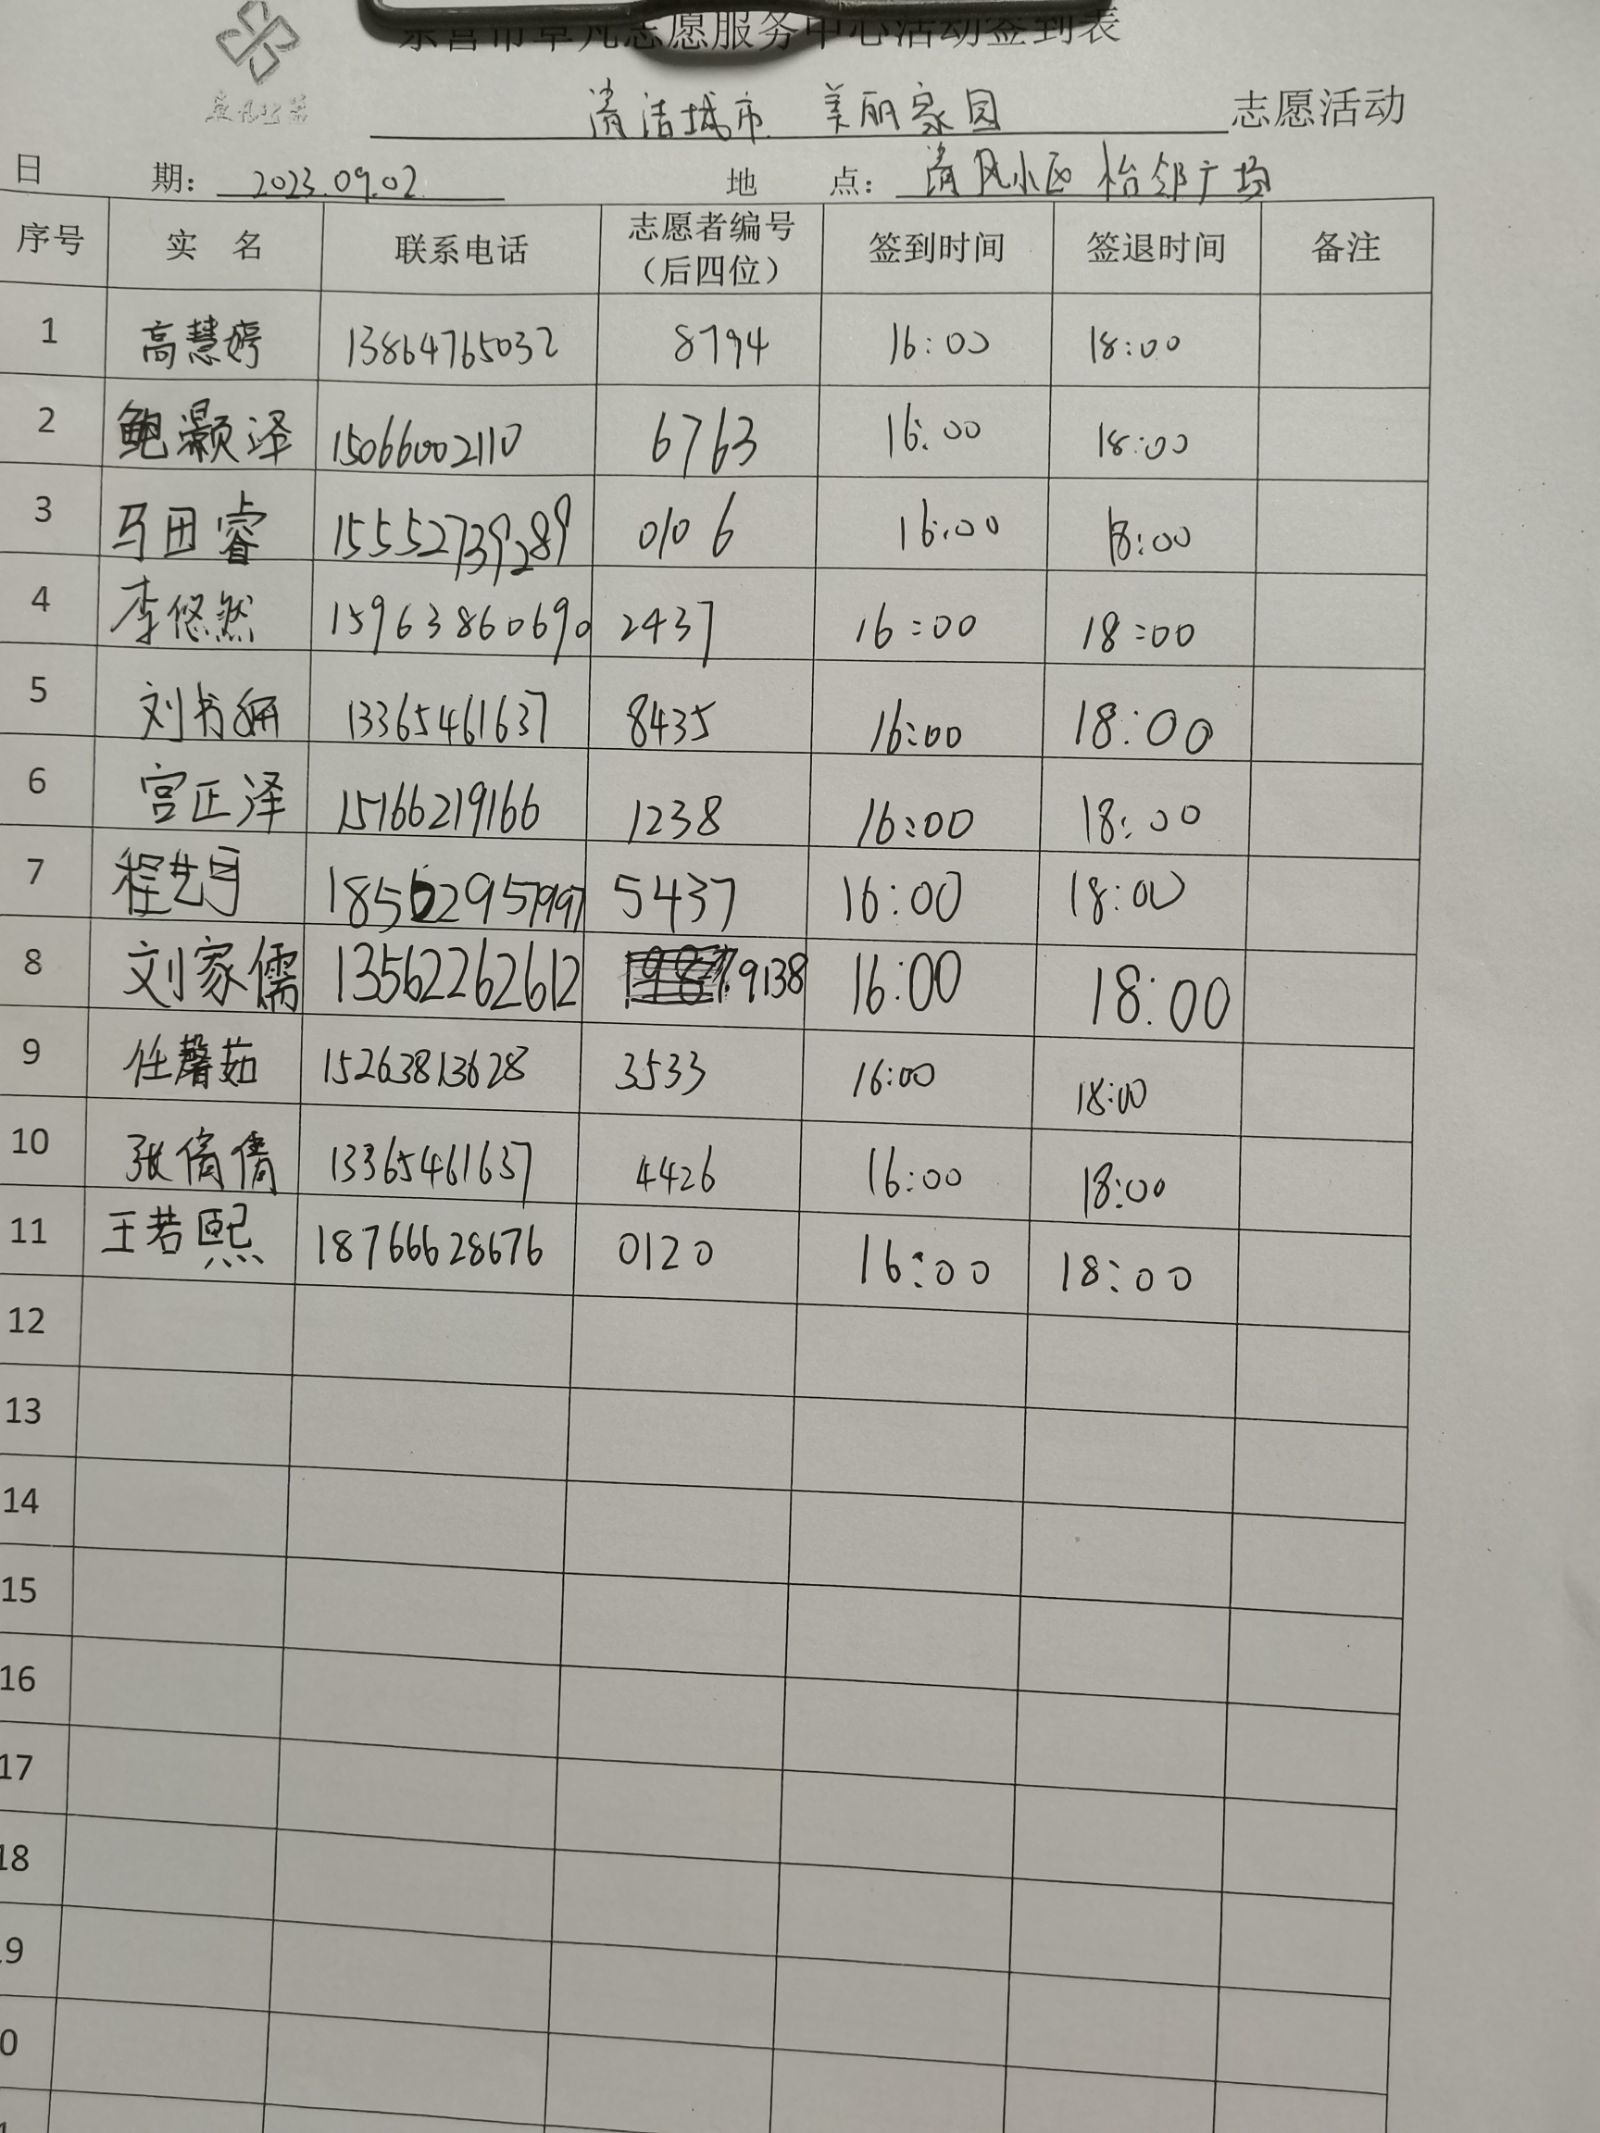 东营市卓凡志愿服务中心活动签到表
清洁城市 美丽家园 志愿活动
日 期： 2023.09.02 地 点： 清风小区 怡邻广场
序号 实 名 联系电话 志愿者编号（后四位） 签到时间 签退时间 备注
1 高慧婷 13864765032 8794 16:00 18:00
2 鲍灏泽 15066002110 6763 16:00 18:00
3 马田睿 15552739289 0106 16:00 18:00
4 李悠然 15963860690 2437 16:00 18:00
5 刘书妍 13365461637 8435 16:00 18:00
6 宫正泽 15166219166 1238 16:00 18:00
7 程艺 18562957997 5437 16:00 18:00
8 刘家儒 13562262612 9138 16:00 18:00
9 任馨茹 15263813628 3533 16:00 18:00
10 张倩倩 13365461637 4426 16:00 18:00
11 王若熙 18766628676 0120 16:00 18:00
12
13
14
15
16
17
18
9
0